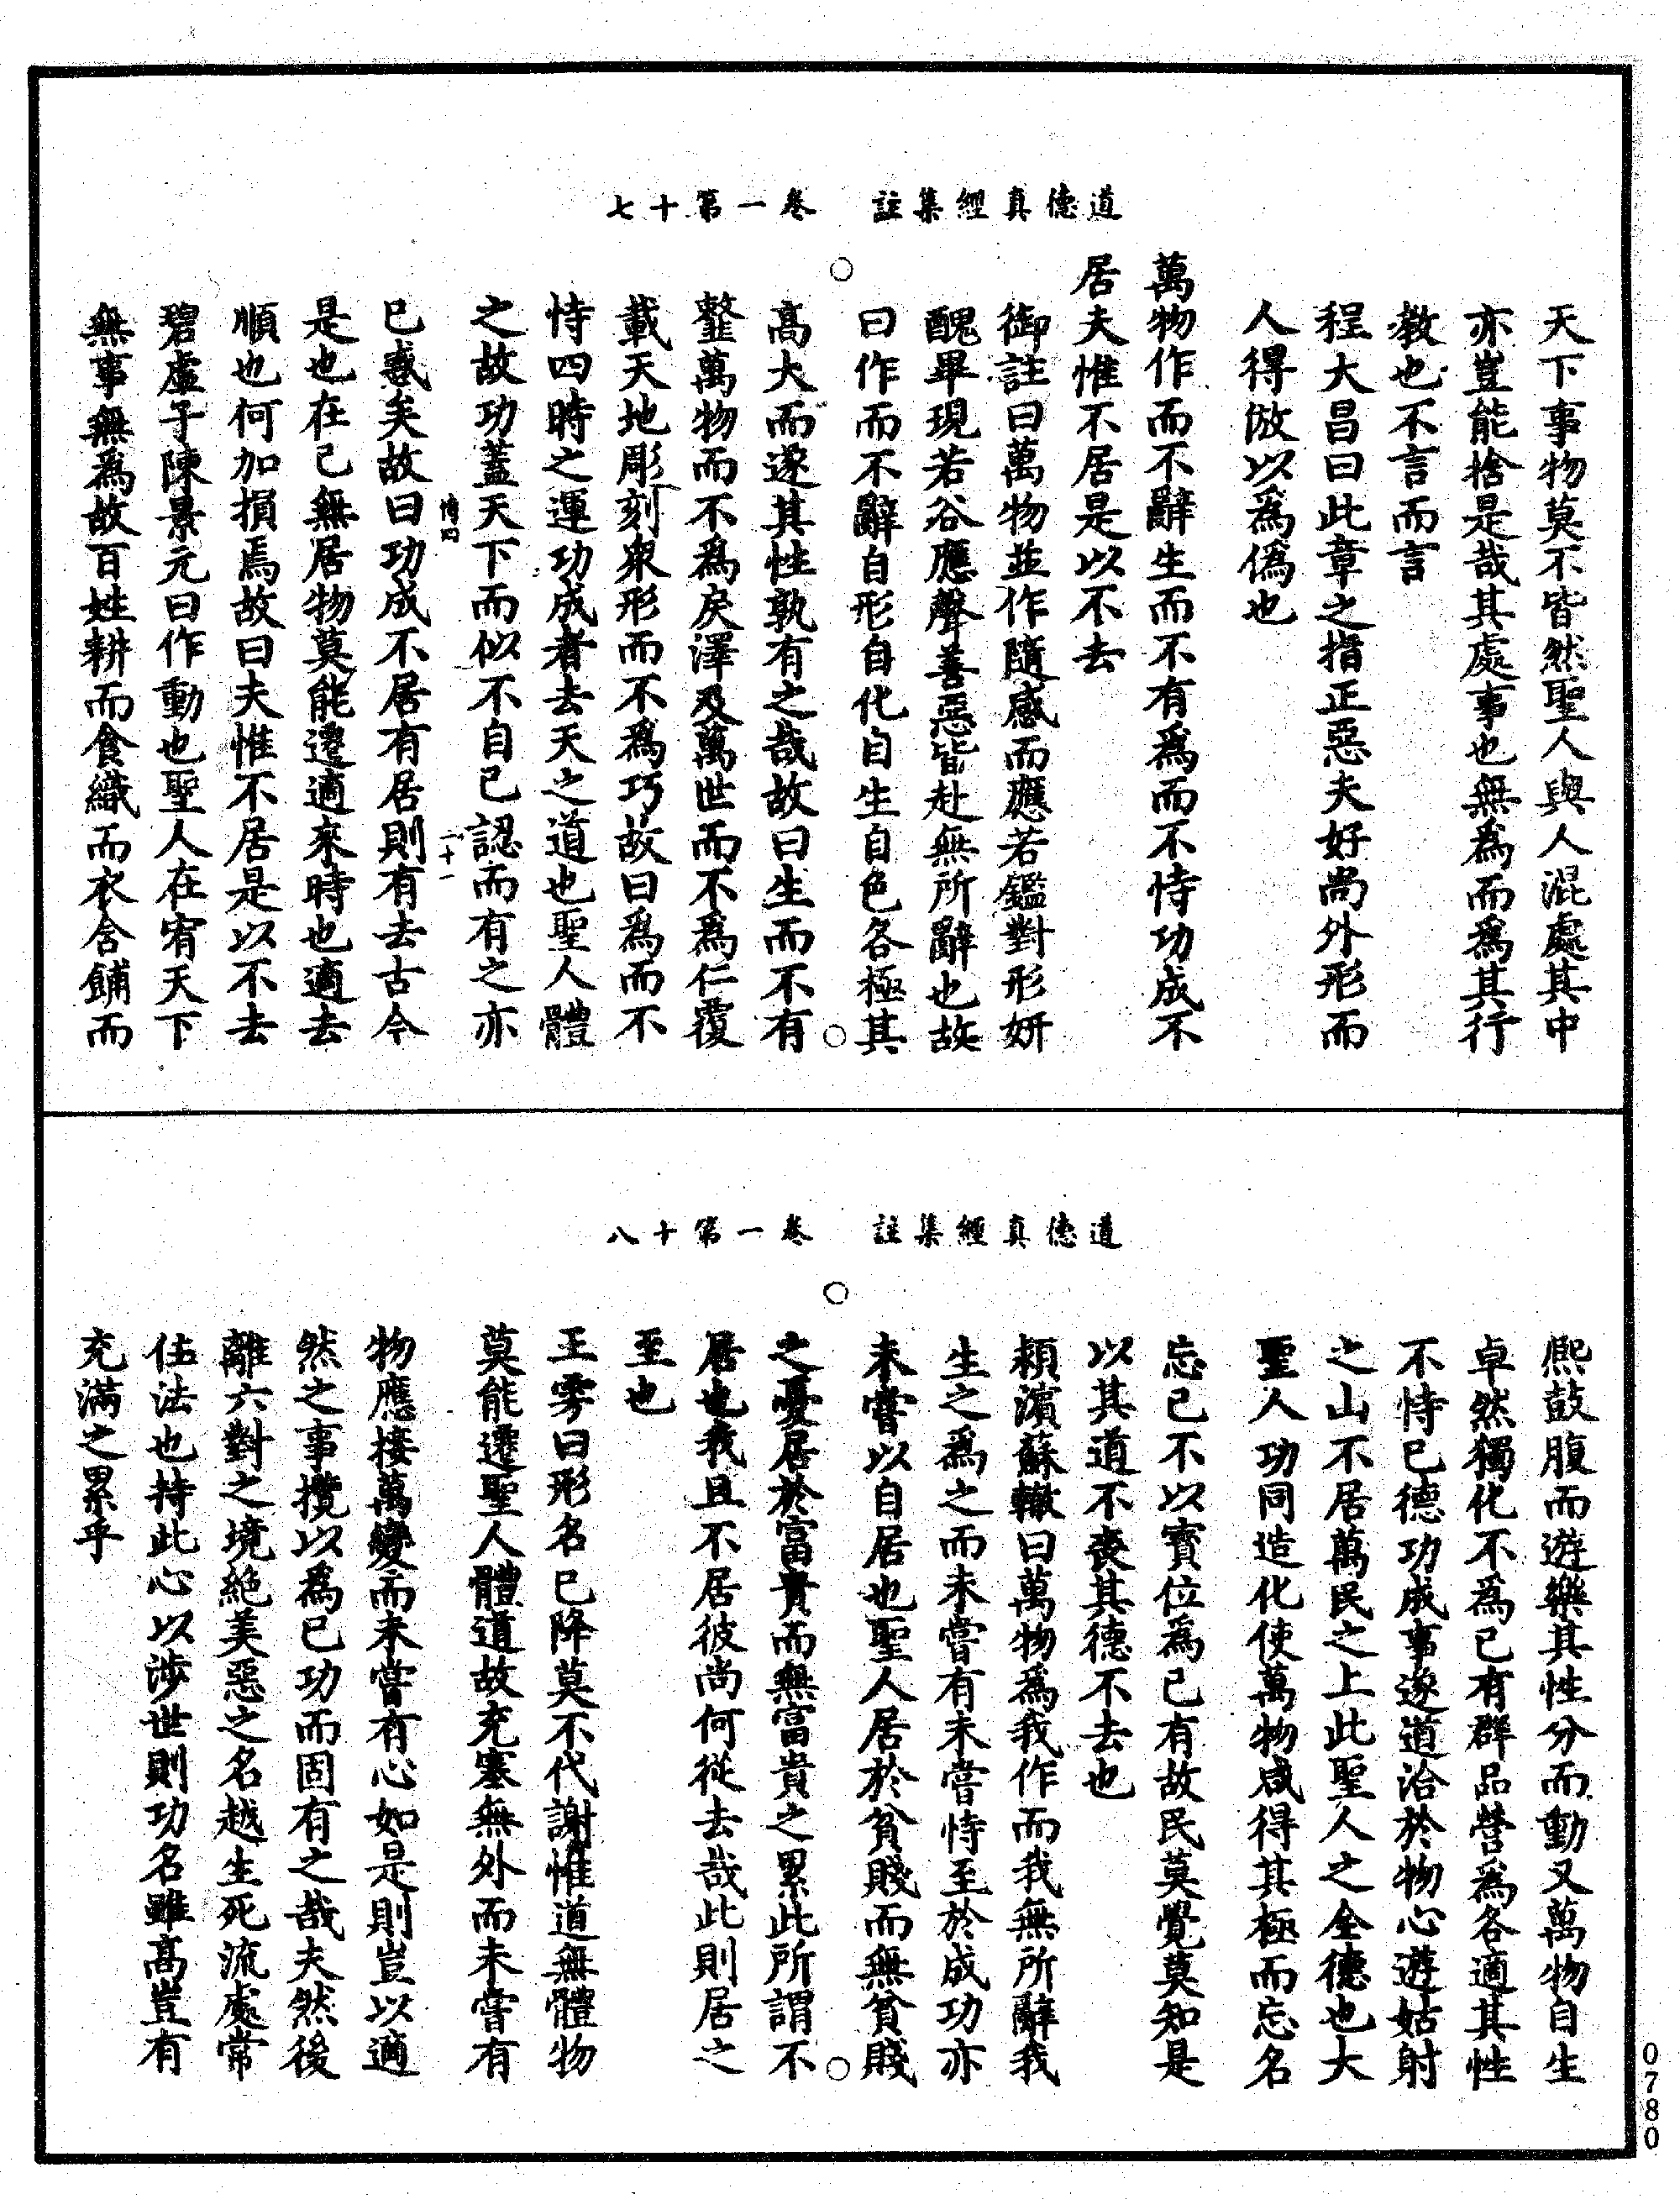 道德真經集註　卷一第十七
天下事物莫不皆然聖人與人混處其中
亦豈能捨是哉其處事也無為而為其行
教也不言而言
程大昌曰此章之指正惡夫好尚外形而
人得倣以為偽也
萬物作而不辭生而不有為而不恃功成不
居夫惟不居是以不去
御註曰萬物並作隨感而應若鑑對形妍
醜畢現若谷應聲善惡皆赴無所辭也故
曰作而不辭自形自化自生自色各極其
高大而遂其性孰有之哉故曰生而不有
䪠萬物而不為戾澤及萬世而不為仁覆
載天地彫刻衆形而不為巧故曰為而不
恃四時之運功成者去天之道也聖人體
之故功蓋天下而似不自已認而有之亦
已惑矣故曰功成不居有居則有去古今
是也在己無居物莫能遷適來時也適去
順也何加損焉故曰夫惟不居是以不去
碧虛子陳景元曰作動也聖人在宥天下
無事無為故百姓耕而食織而衣含餔而
道德真經集註　卷一第十八
熙鼓腹而遊樂其性分而動又萬物自生
卓然獨化不為已有群品營為各適其性
不恃已德功成事遂道洽於物心遊姑射
之山不居萬民之上此聖人之全德也大
聖人功同造化使萬物咸得其極而忘名
忘已不以寶位為已有故民莫覺莫知是
以其道不喪其德不去也
頴濱蘇轍曰萬物為我作而我無所辭我
生之為之而未嘗有未嘗恃至於成功亦
未嘗以自居也聖人居於貧賤而無貧賤
之憂居於富貴而無富貴之累此所謂不
居也我且不居彼尚何從去哉此則居之
至也
王雱曰形名已降莫不代謝惟道無體物
莫能遷聖人體道故充塞無外而未嘗有
物應接萬變而未嘗有心如是則豈以適
然之事攬以為已功而固有之哉夫然後
離六對之境絕美惡之名越生死流處常
住法也持此心以涉世則功名雖高豈有
充滿之累乎
0780